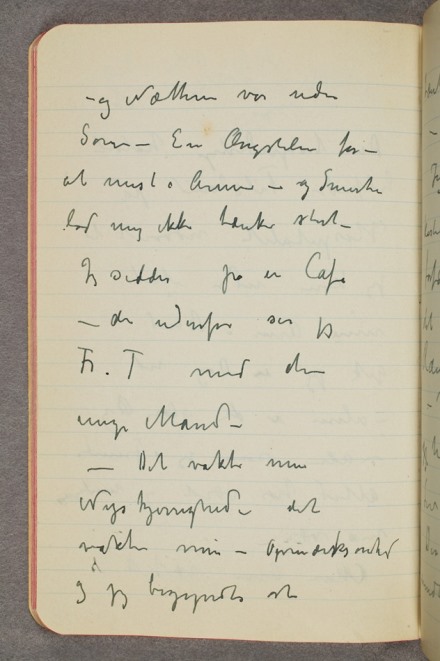 – og Nætterne var uden
Søvn – En Ængstelse for –
at miste Armen – og Smerten
lod mig ikke tænke stort –
Jeg sidder på en Café
– der udenfor ser jeg
Fr. T med den
unge Mand –
– Det vakte min
Nysgjerrighed – det
vakte min – Opmærksomhed
og jeg begyndte at